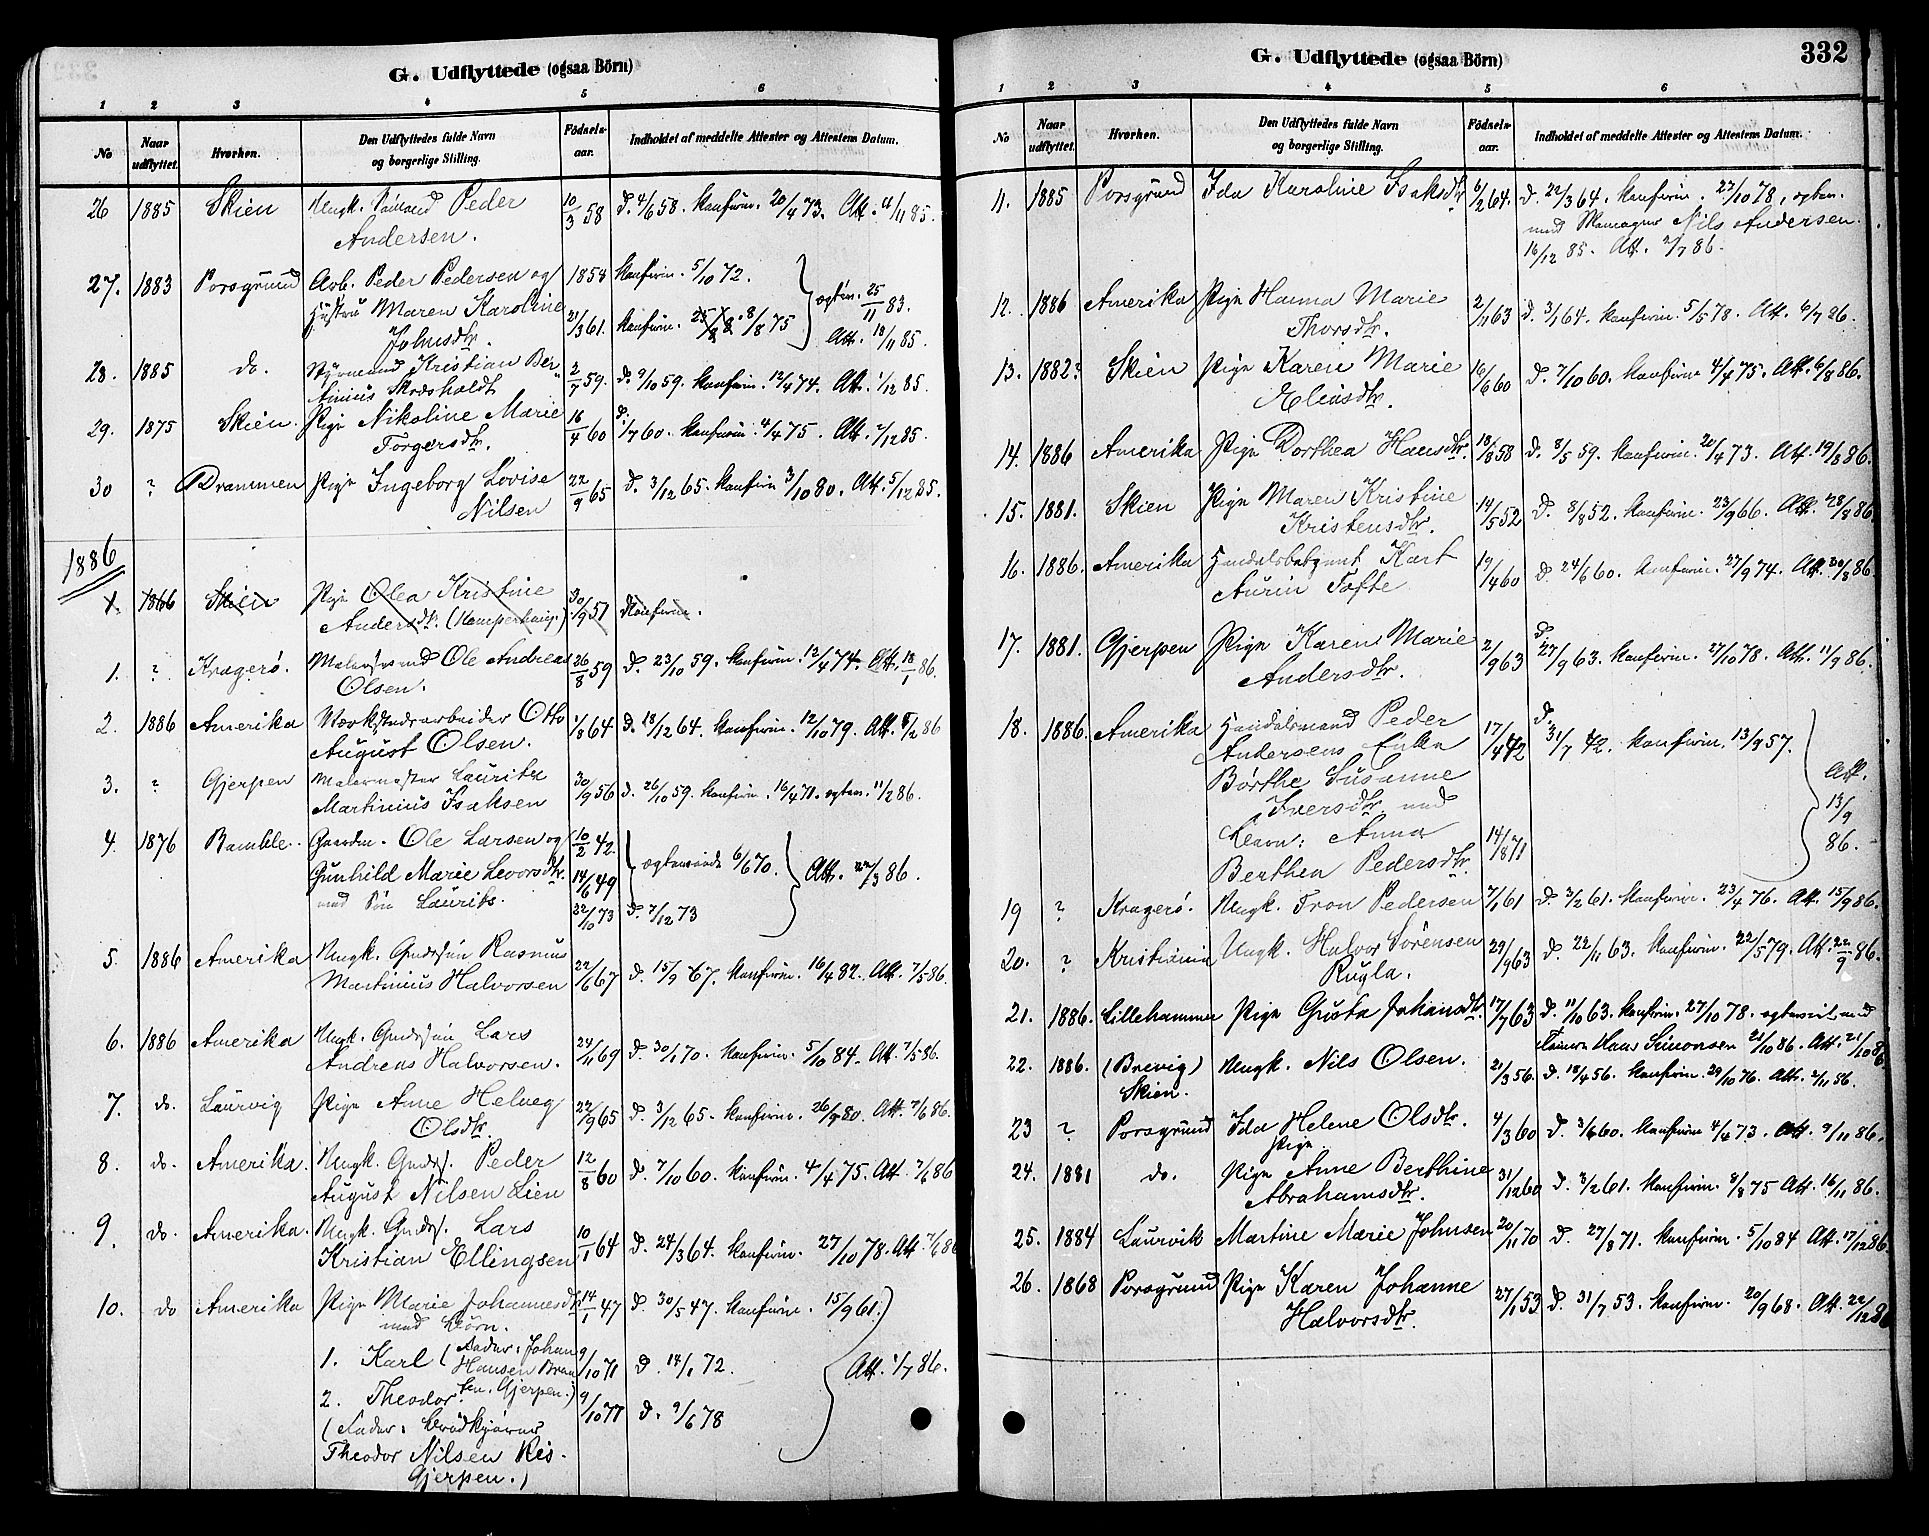 G. Udflyttede (ogsaa Börn)
1 2 3 4 5 6
No Naar udflyttet. Hvorhen. Den Udflyttedes fulde Navn og borgerlige Stilling. Födsels-aar. Indholdet af meddelte Attester og Attestens Datum.
26 1885 Skien Ungk. Peder 10/3 58 d. 4/6 58. konfirm. 20/4 73. Att. 4/11 85.
Andersen.
27. 1883 Porsgrund Arb. Peder Pedersen og 1858 konfirm. 5/10 72.
Hustru Maren Karoline 21/3 61. konfirm. 8/8 75 ægtev. 25/11 83.
Johnsdtr. Att. 13/11 85.
28. 1885 do. Styrmand Kristian Ber- 2/7 59. d. 9/10 59. konfirm. 12/4 74. Att. 1/12 85.
29. 1875 Skien. Pige Nikoline Marie 16/4 60 d. 1/7 60. konfirm. 4/4 75. Att. 2/12 85.
Torgersdtr.
30 ? Drammen Pige Ingeborg Lovise 22/9 65 d. 3/12 65. konfirm 3/10 80. Att. 5/12 85.
Nilsen
1886
1. 1866 Skien Pige Olea Kristine 30/9 51 Konfirm.
Andersdtr. (Kamperhaug)
1. ? Kragerø. Malersvend Ole Andreas 26/8 59 d. 23/10 59. konfirm. 12/4 74. Att. 18/1 86.
Olsen.
2. 1886 Amerika Værkstedsarbeider Otto 1/8 64 d. 18/12 64. konfirm. 12/10 79. Att. 8/2 86
August Olsen.
3. ? Gjerpen Malermester Lauritz 30/9 56 d. 26/10 59. konfirm. 16/4 71. ægtev. 11/2 86.
Martinius Isaksen
4. 1876 Bamble. Gaardm. Ole Larsen og 10/2 42.
Gunhild Marie Levorsdtr. 14/6 49 ægteviede 6/6 70. Att. 22/3 86.
med Søn Laurits. 22/10 73 d. 7/12 73
5. 1886 Amerika Ungk. Grdrsøn Rasmus
Martinius Halvorsen 22/6 67 d. 15/9 67. konfirm. 16/4 82. Att. 7/5 86.
6. 1886 Amerika Ungk. Grdrsøn Lars
Andreas Halvorsen. 24/11 69 d. 30/1 70. konfirm. 5/10 84. Att. 7/5 86.
7. do. Laurvig Pige Anne Helveg 22/9 65 d. 3/12 65. konfirm. 26/9 80. Att. 7/6 86.
Olsdtr.
8. do. Amerika. Ungk. Grdrs. Peder 12/8 60 d. 7/10 60. konfirm. 4/4 75. Att. 7/6 86
August Nilsen Lien
9. do. Amerika. Ungk. Grdrs. Lars
Kristian Ellingsen 10/1 64 d. 24/3 64. konfirm. 27/10 78. Att. 7/6 86
10. do Amerika Pige Marie Johannesdtr. 14/1 47 d. 30/5 47. konfirm. 15/9 61.
med Børn.
1. Karl (Fader: Johan 9/10 71 d. 14/1 72. Att. 1/7 86.
Hansen
Gjerpen.)
2. Theodor 9/10 77 d. 9/6 78
(Fader:
Theodor Nilsen Ris.
Gjerpen.)
G. Udflyttede (ogsaa Börn) 332
1 2 3 4 5 6
No Naar udflyttet. Hvorhen. Den Udflyttedes fulde Navn og borgerlige Stilling. Födsels-aar. Indholdet af meddelte Attester og Attestens Datum.
11. 1885 Porsgrund Ida Karoline Isaksdtr. 6/2 64. d. 22/3 64. konfirm. 27/10 78, ægtev.
med Nils Andersen.
16/12 85. Att. 2/7 86.
12. 1886 Amerika Pige Hanna Marie 2/11 63 d. 3/1 64. konfirm. 5/5 78. Att. 6/7 86.
Thorsdtr.
13. 1882? Skien Pige Karen Marie 16/6 60 d. 7/10 60. konfirm 4/4 75. Att. 6/8 86.
Eliasdtr.
14. 1886 Amerika Pige Dorthea Hansdtr. 18/8 58 d. 8/5 59. konfirm. 20/4 73. Att. 19/8 86.
15. 1881. Skien Pige Maren Kristine 14/5 52 d. 8/8 52. konfirm. 23/9 66. Att. 28/8 86
Kristensdtr.
16. 1886. Amerika Handelsbetjent Karl 19/4 60 d. 24/6 60. konfirm. 27/9 74. Att. 30/8 86
Aurin Tofte
17. 1881. Gjerpen Pige Karen Marie 2/9 63 d. 27/9 63. konfirm. 27/10 78. Att. 11/9 86.
Andersdtr.
18. 1886. Amerika Handelsmand Peder 17/4 42 d. 31/7 42. konfirm. 13/9 57.
Andersens Enke
Børthe Susanne Att.
Iversdtr. med 13/9
Anna 14/8 71 86.
Berthea Pedersdtr.
19 ? Kragerø. Ungk. Tron Pedersen 7/1 61 d. 3/2 61. konfirm. 23/4 76. Att. 15/9 86.
20. ? Kristiania Ungk. Halvor Sørensen 29/9 63 d. 22/11 63. konfirm. 22/5 79. Att. 22/9 86.
Rugla.
21. 1886. Lillehammer Pige Gusta Johansdtr. 17/7 63 d. 11/10 63. konfirm. 27/10 78. ægteviet med
Hans Simonsen 21/10 86. Att. 21/10 86
22. 1886. (Brevig) Ungk. Nils Olsen. 21/3 56. d. 18/4 56. konfirm. 29/10 76. Att. 2/11 86.
Skien.
23 ? Porsgrund Ida Helene Olsdtr. 4/3 60 d. 3/6 60. konfirm 4/4 73. Att. 9/11 86.
Pige
24. 1881 do. Pige Anne Berthine 31/12 60 d. 3/2 61. konfirm. 8/8 75 Att. 16/11 86.
Abrahamsdtr.
25. 1884 Laurvik Martine Marie Johnsen 20/11 70 d. 27/8 71. konfirm. 5/10 84 Att. 17/12 86.
26. 1868 Porsgrund Pige Karen Johanne 27/1 53 d. 31/7 53. konfirm. 20/9 68. Att. 22/12 86
Halvorsdtr.